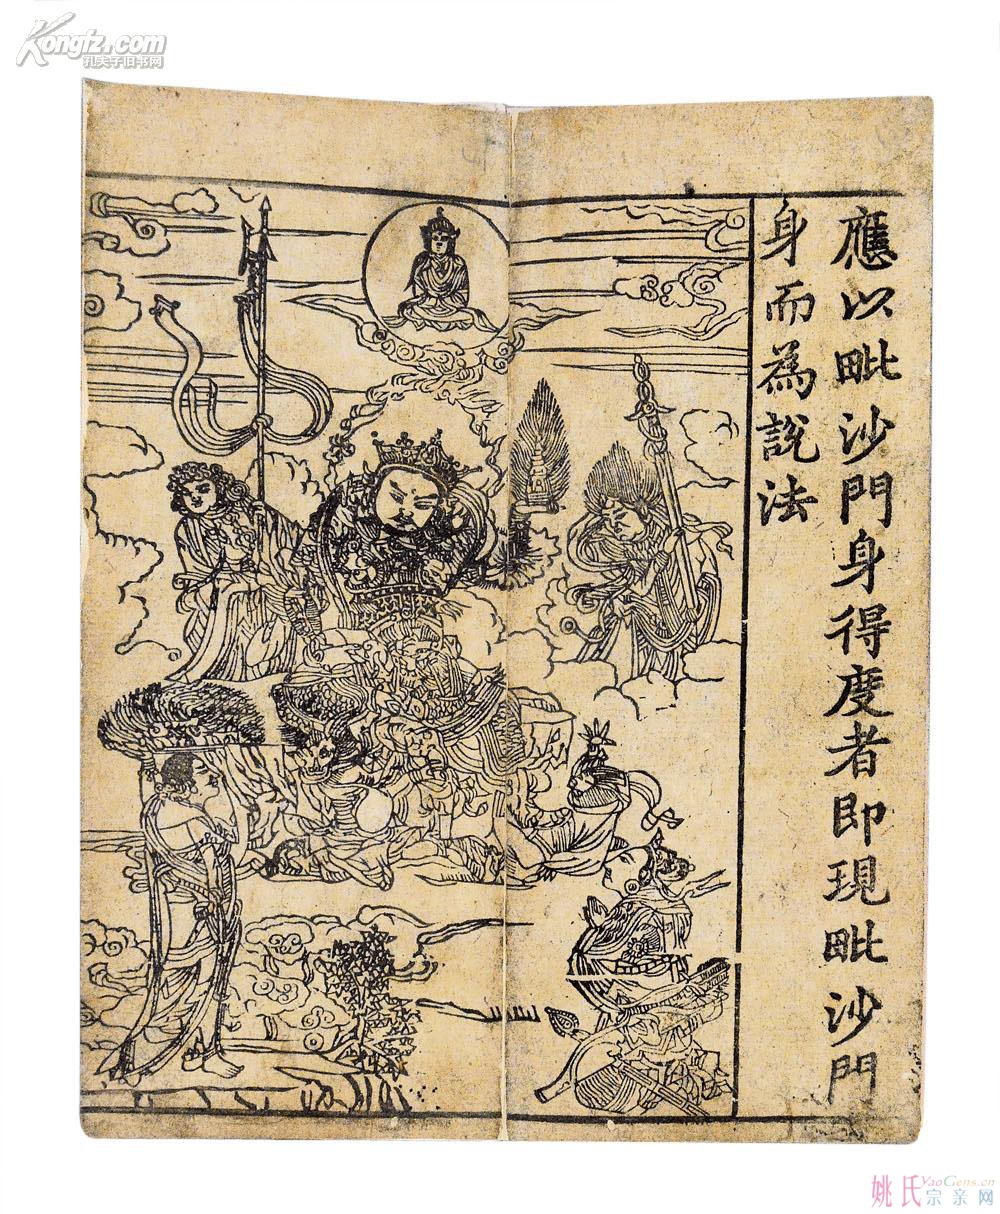 Kongfz.com
孔夫子旧书网
應以毗沙門身得度者即現毗沙門
身而為說法
姚氏宗亲网
YaoGens.cn